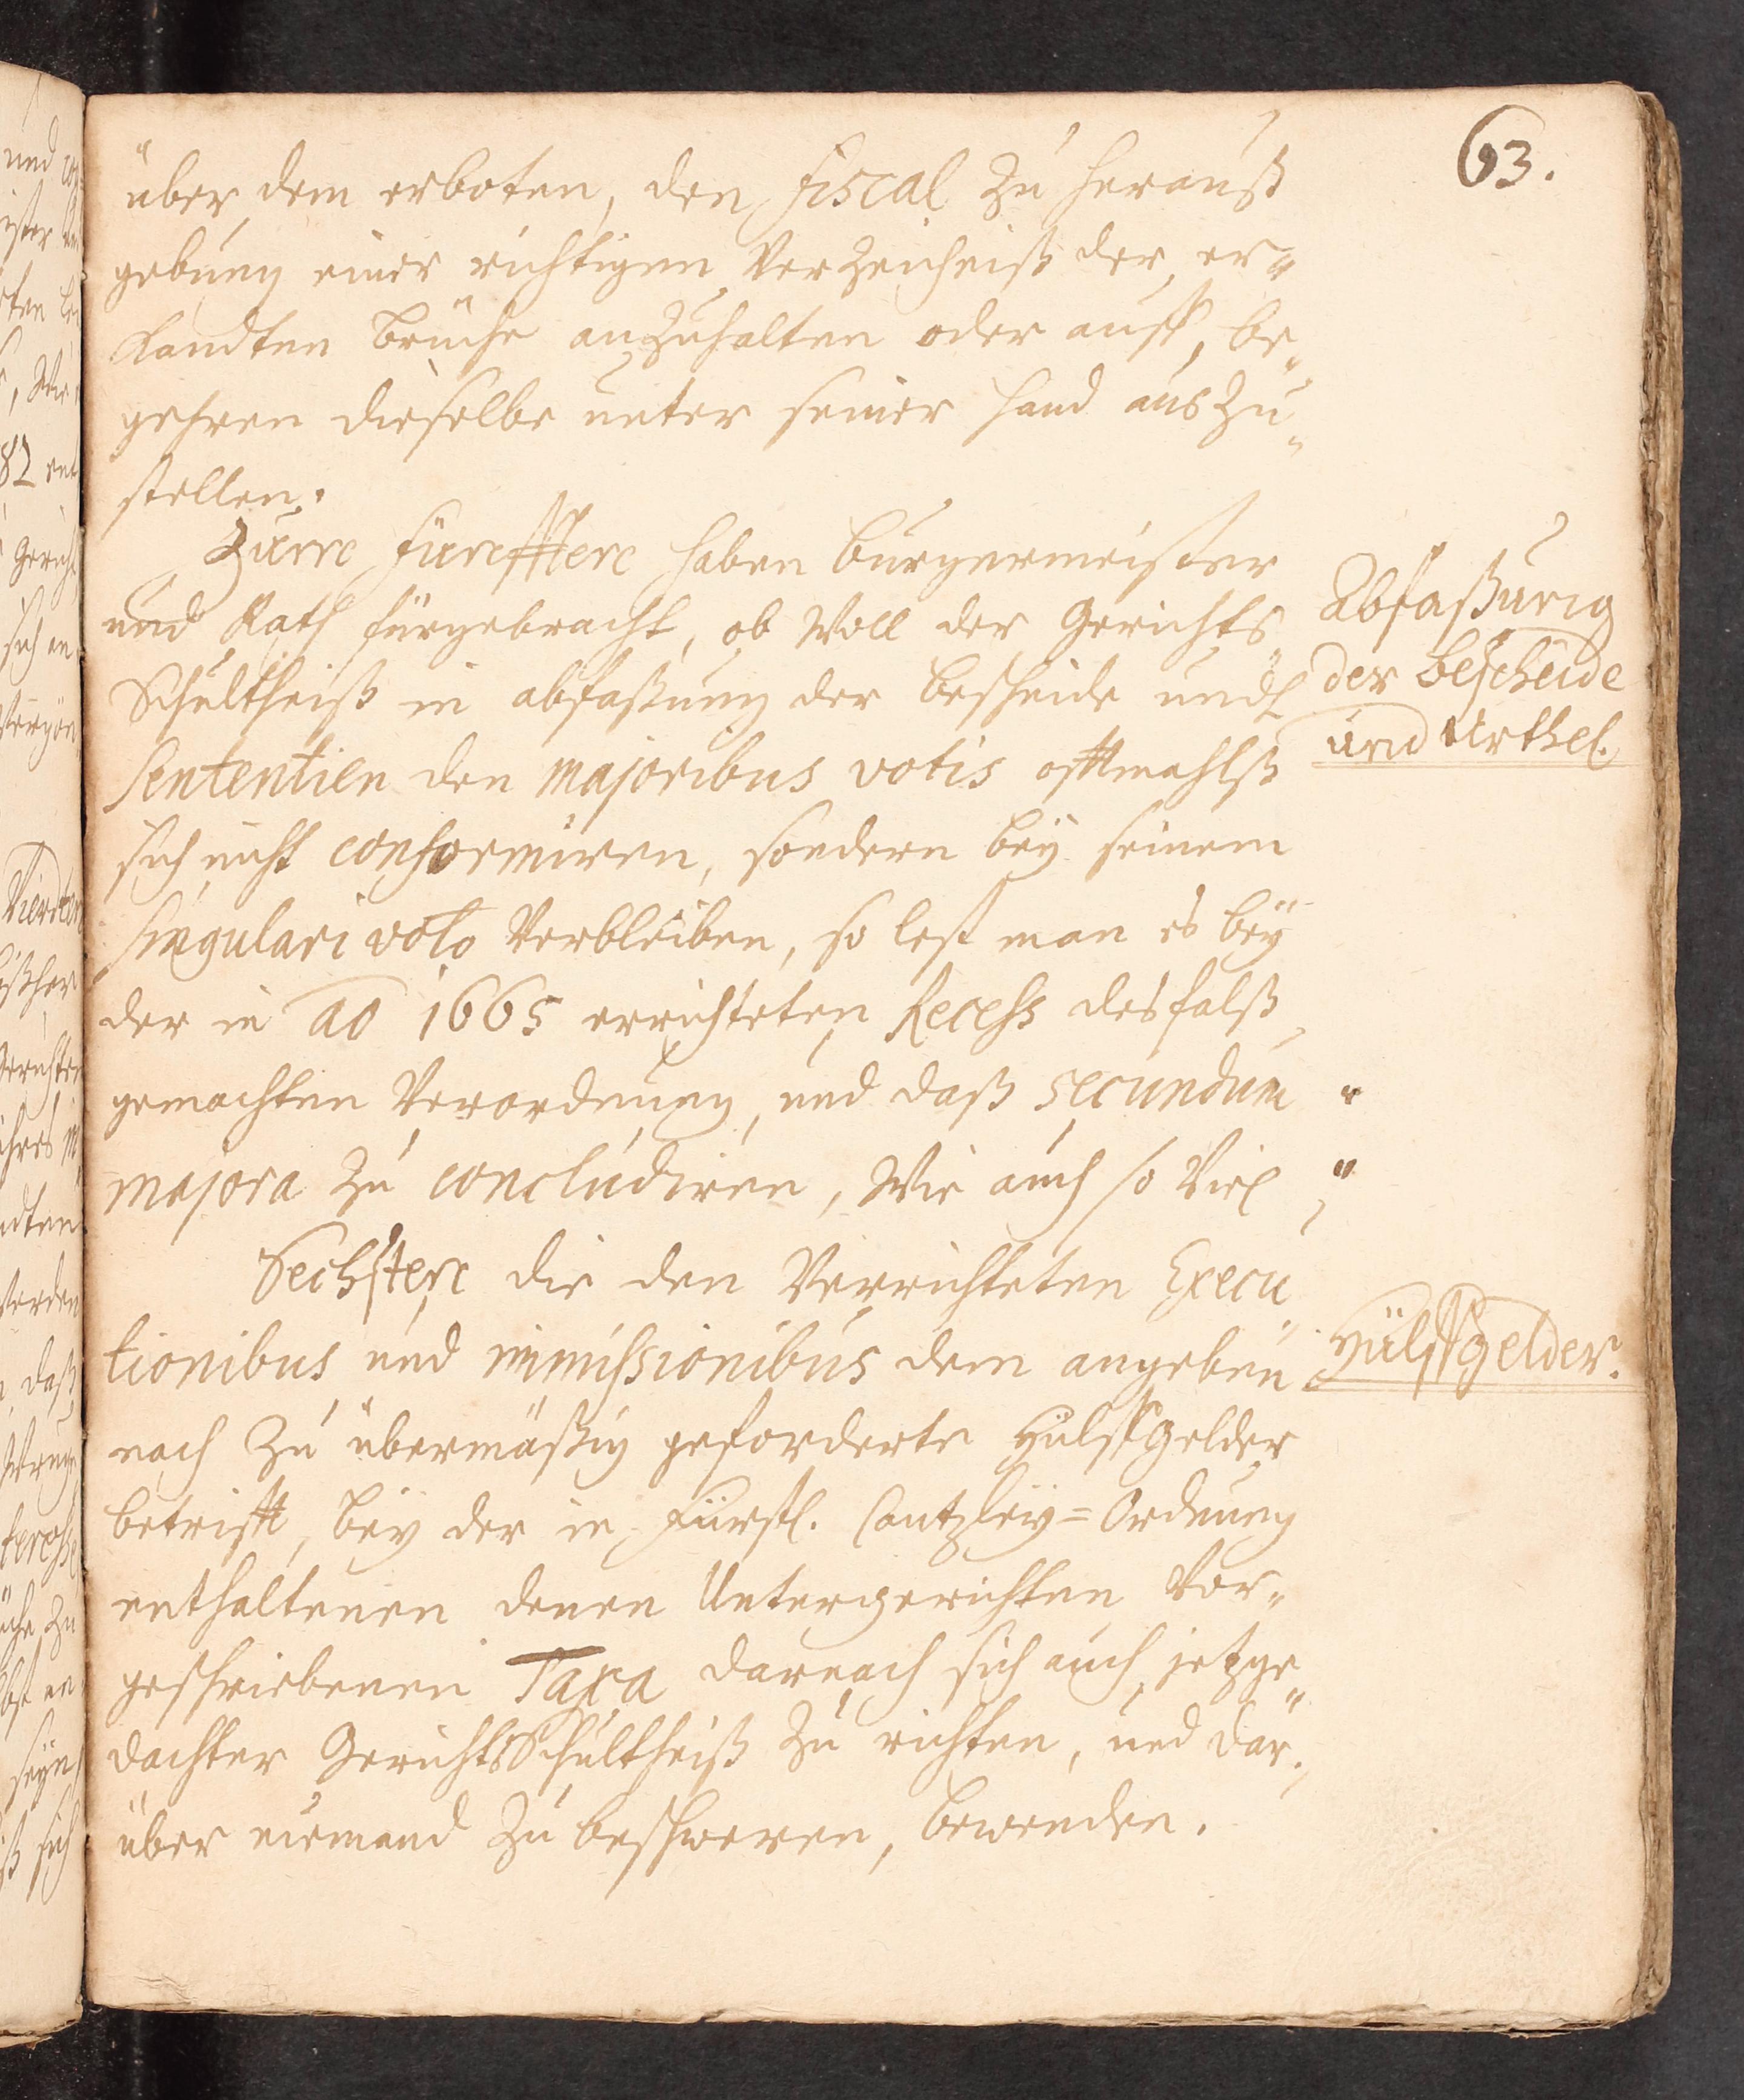 63.
über dem erboten, den Fiscal zu herauß
gebung einer richtigen Verzeichniß der er=
kandten brüche anzuhalten oder auff be„
gehren dieselbe unter seiner hand auszu„
stellen.
Zum Fünfften haben bürgermeister
und Rath fürgebracht, ob woll der Gerichts„
Schultheiß in abfaßung der bescheide und
Sententien den majoribus votis offtmahlß
sich nicht conformiren, sondern bey seinem
singulari voto verbleiben, so lest man es bey
der in ao 1665 errichteten Recess desfalß
gemachten Verordnung, und daß secundum
majora zu concludiren, wie auch so viel
Sechsten die den verrichteten Execu„
tionibus und immissionibus dem angeben
nach zu übermäßig geforderte Hülffgelder
betrifft, bey der in Fürstl. Cantzley=Ordnung
enthaltenen denen Untergerichten vor„
geschriebenen Taxa darnach sich auch jetzge„
dachter GerichtsSchultheiß zu richten, und dar„
über niemand zu beschweren, bewenden.
Abfaßung
der bescheide
und Urthel.
Hülffgelder.